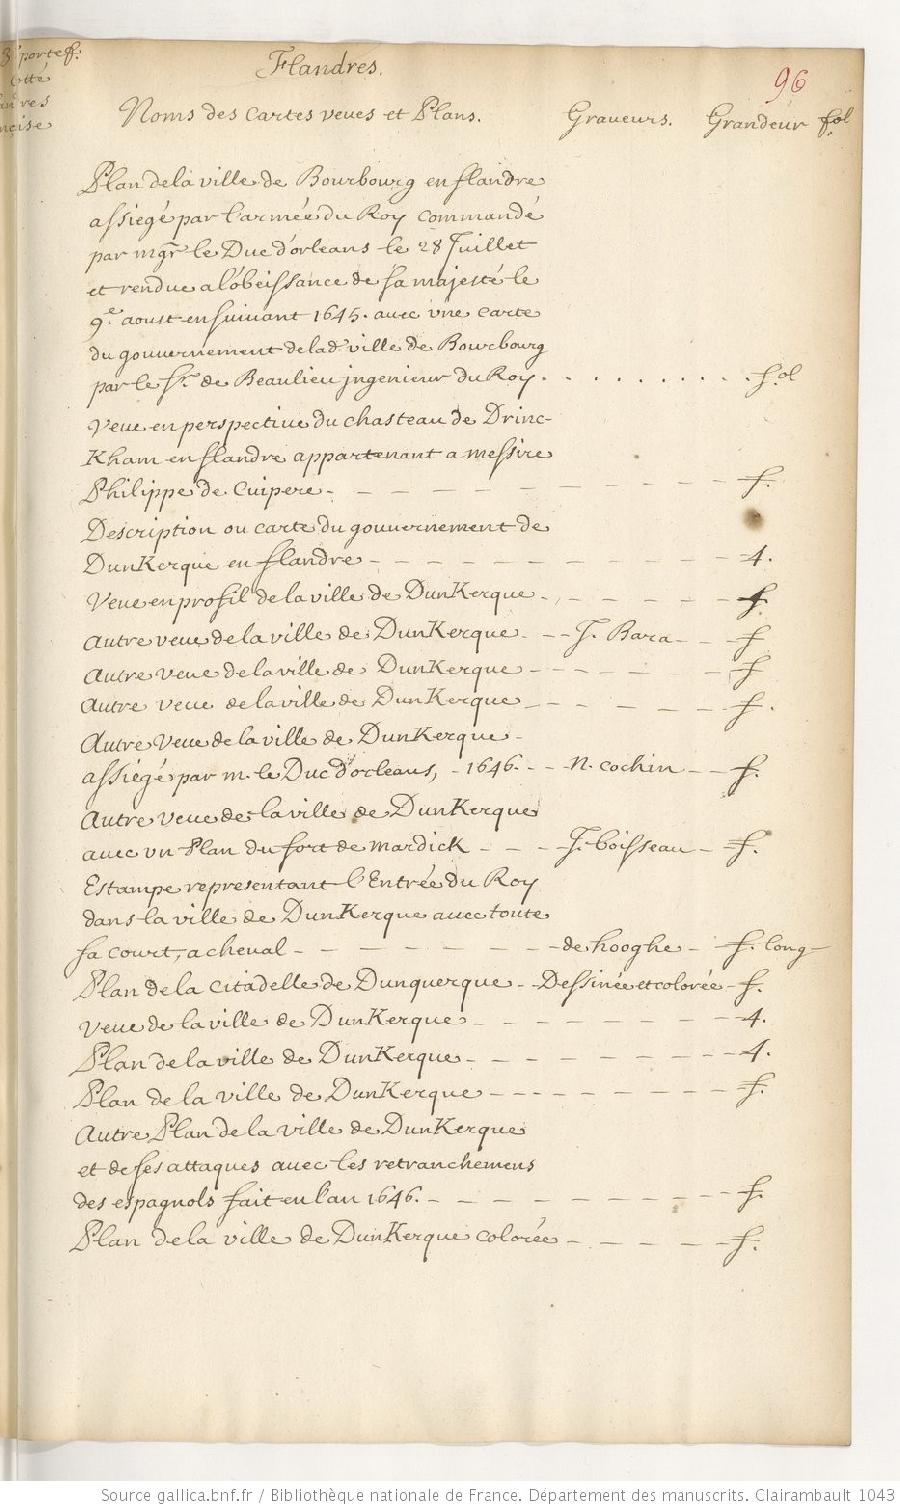 3e portef.
cotté
Flandres.
96
Noms des Cartes veues et Plans. Graueurs. Grandeur fol
Plan de la ville de Bourbourg en flandre
assiegé par l'armée du Roy commandé
par mgr. le Duc d'orleans le 28 Juillet
et rendue a l'obeissance de sa majesté le
9e. aoust ensuiuant 1645. auec vne carte
du gouuernement de lad. ville de Bourbourg
par le Sr. de Beaulieu jngenieur du Roy. . . . . . . . . . . fol
Veue en perspectiue du chasteau de Drinc-
Kham en flandre appartenant a messire
Philippe de Cuipere - - - - - - - - f.
Description ou carte du gouuernement de
DunKerque en flandre - - - - - - - - 4.
Veue en profil de la ville de DunKerque - - - - - f.
Autre veue de la ville de DunKerque - - - J. Bara - - f
Autre veue de la ville de DunKerque - - - - - f
Autre veue de la ville de DunKerque - - - - - f.
Autre Veue de la ville de DunKerque -
assiegé par m. le Duc d'orleans, - 1646. - - N. Cochin - - f.
Autre Veue de la ville de DunKerque
auec vn Plan du fort de mardick - - - J. boisseau - f.
Estampe representant l'Entrée du Roy
dans la ville de DunKerque auec toute
sa court, a cheval - - - - - - - - de hooghe - f. long
Plan de la Citadelle de Dunquerque - Dessinée et colorée - f.
Veue de la ville de DunKerque - - - - - - - 4.
Plan de la ville de DunKerque - - - - - - - 4.
Plan de la ville de DunKerque - - - - - - - f.
Autre Plan de la ville de DunKerque
et de ses attaques auec les retranchemens
des espagnols fait en l'an 1646. - - - - - - - f.
Plan de la ville de DunKerque colorée - - - - - f.
Source gallica.bnf.fr / Bibliothèque nationale de France. Département des manuscrits. Clairambault 1043